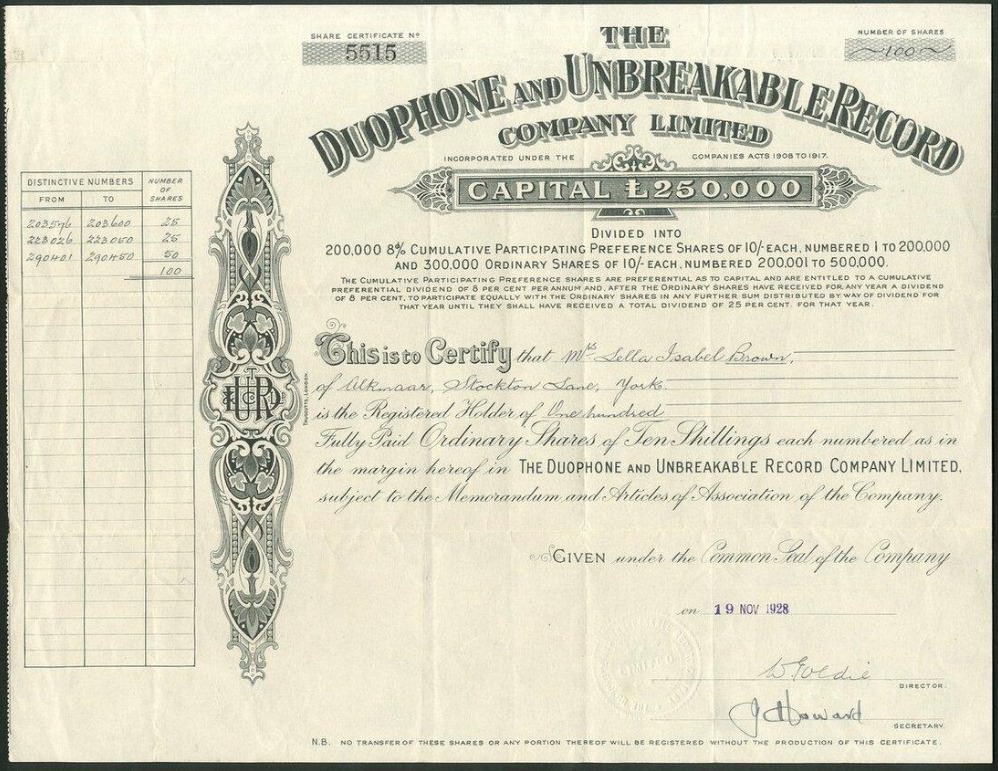 SHARE CERTIFICATE Nº
5515
NUMBER OF SHARES
100
THE
DUOPHONE AND UNBREAKABLE RECORD
COMPANY LIMITED
INCORPORATED UNDER THE COMPANIES ACTS 1908 TO 1917.
CAPITAL £250,000
DIVIDED INTO
200,000 8% CUMULATIVE PARTICIPATING PREFERENCE SHARES OF 10/- EACH, NUMBERED 1 TO 200,000
AND 300,000 ORDINARY SHARES OF 10/- EACH, NUMBERED 200,001 TO 500,000.
THE CUMULATIVE PARTICIPATING PREFERENCE SHARES ARE PREFERENTIAL AS TO CAPITAL AND ARE ENTITLED TO A CUMULATIVE
PREFERENTIAL DIVIDEND OF 8 PER CENT PER ANNUM AND, AFTER THE ORDINARY SHARES HAVE RECEIVED FOR ANY YEAR A DIVIDEND
OF 8 PER CENT, TO PARTICIPATE EQUALLY WITH THE ORDINARY SHARES IN ANY FURTHER SUM DISTRIBUTED BY WAY OF DIVIDEND FOR
THAT YEAR UNTIL THEY SHALL HAVE RECEIVED A TOTAL DIVIDEND OF 25 PER CENT. FOR THAT YEAR.
DISTINCTIVE NUMBERS NUMBER OF SHARES
FROM TO
203576 203600 25
223026 223050 25
290401 290450 50
100
This is to Certify that Mrs Lella Isabel Brown,
of Alkmaar, Stockton Lane, York
is the Registered Holder of One hundred
Fully Paid Ordinary Shares of Ten Shillings each numbered as in
the margin hereof in THE DUOPHONE AND UNBREAKABLE RECORD COMPANY LIMITED,
subject to the Memorandum and Articles of Association of the Company.
GIVEN under the Common Seal of the Company
on 19 NOV 1928
W Goldie
DIRECTOR.
J Howard
SECRETARY.
N.B. NO TRANSFER OF THESE SHARES OR ANY PORTION THEREOF WILL BE REGISTERED WITHOUT THE PRODUCTION OF THIS CERTIFICATE.